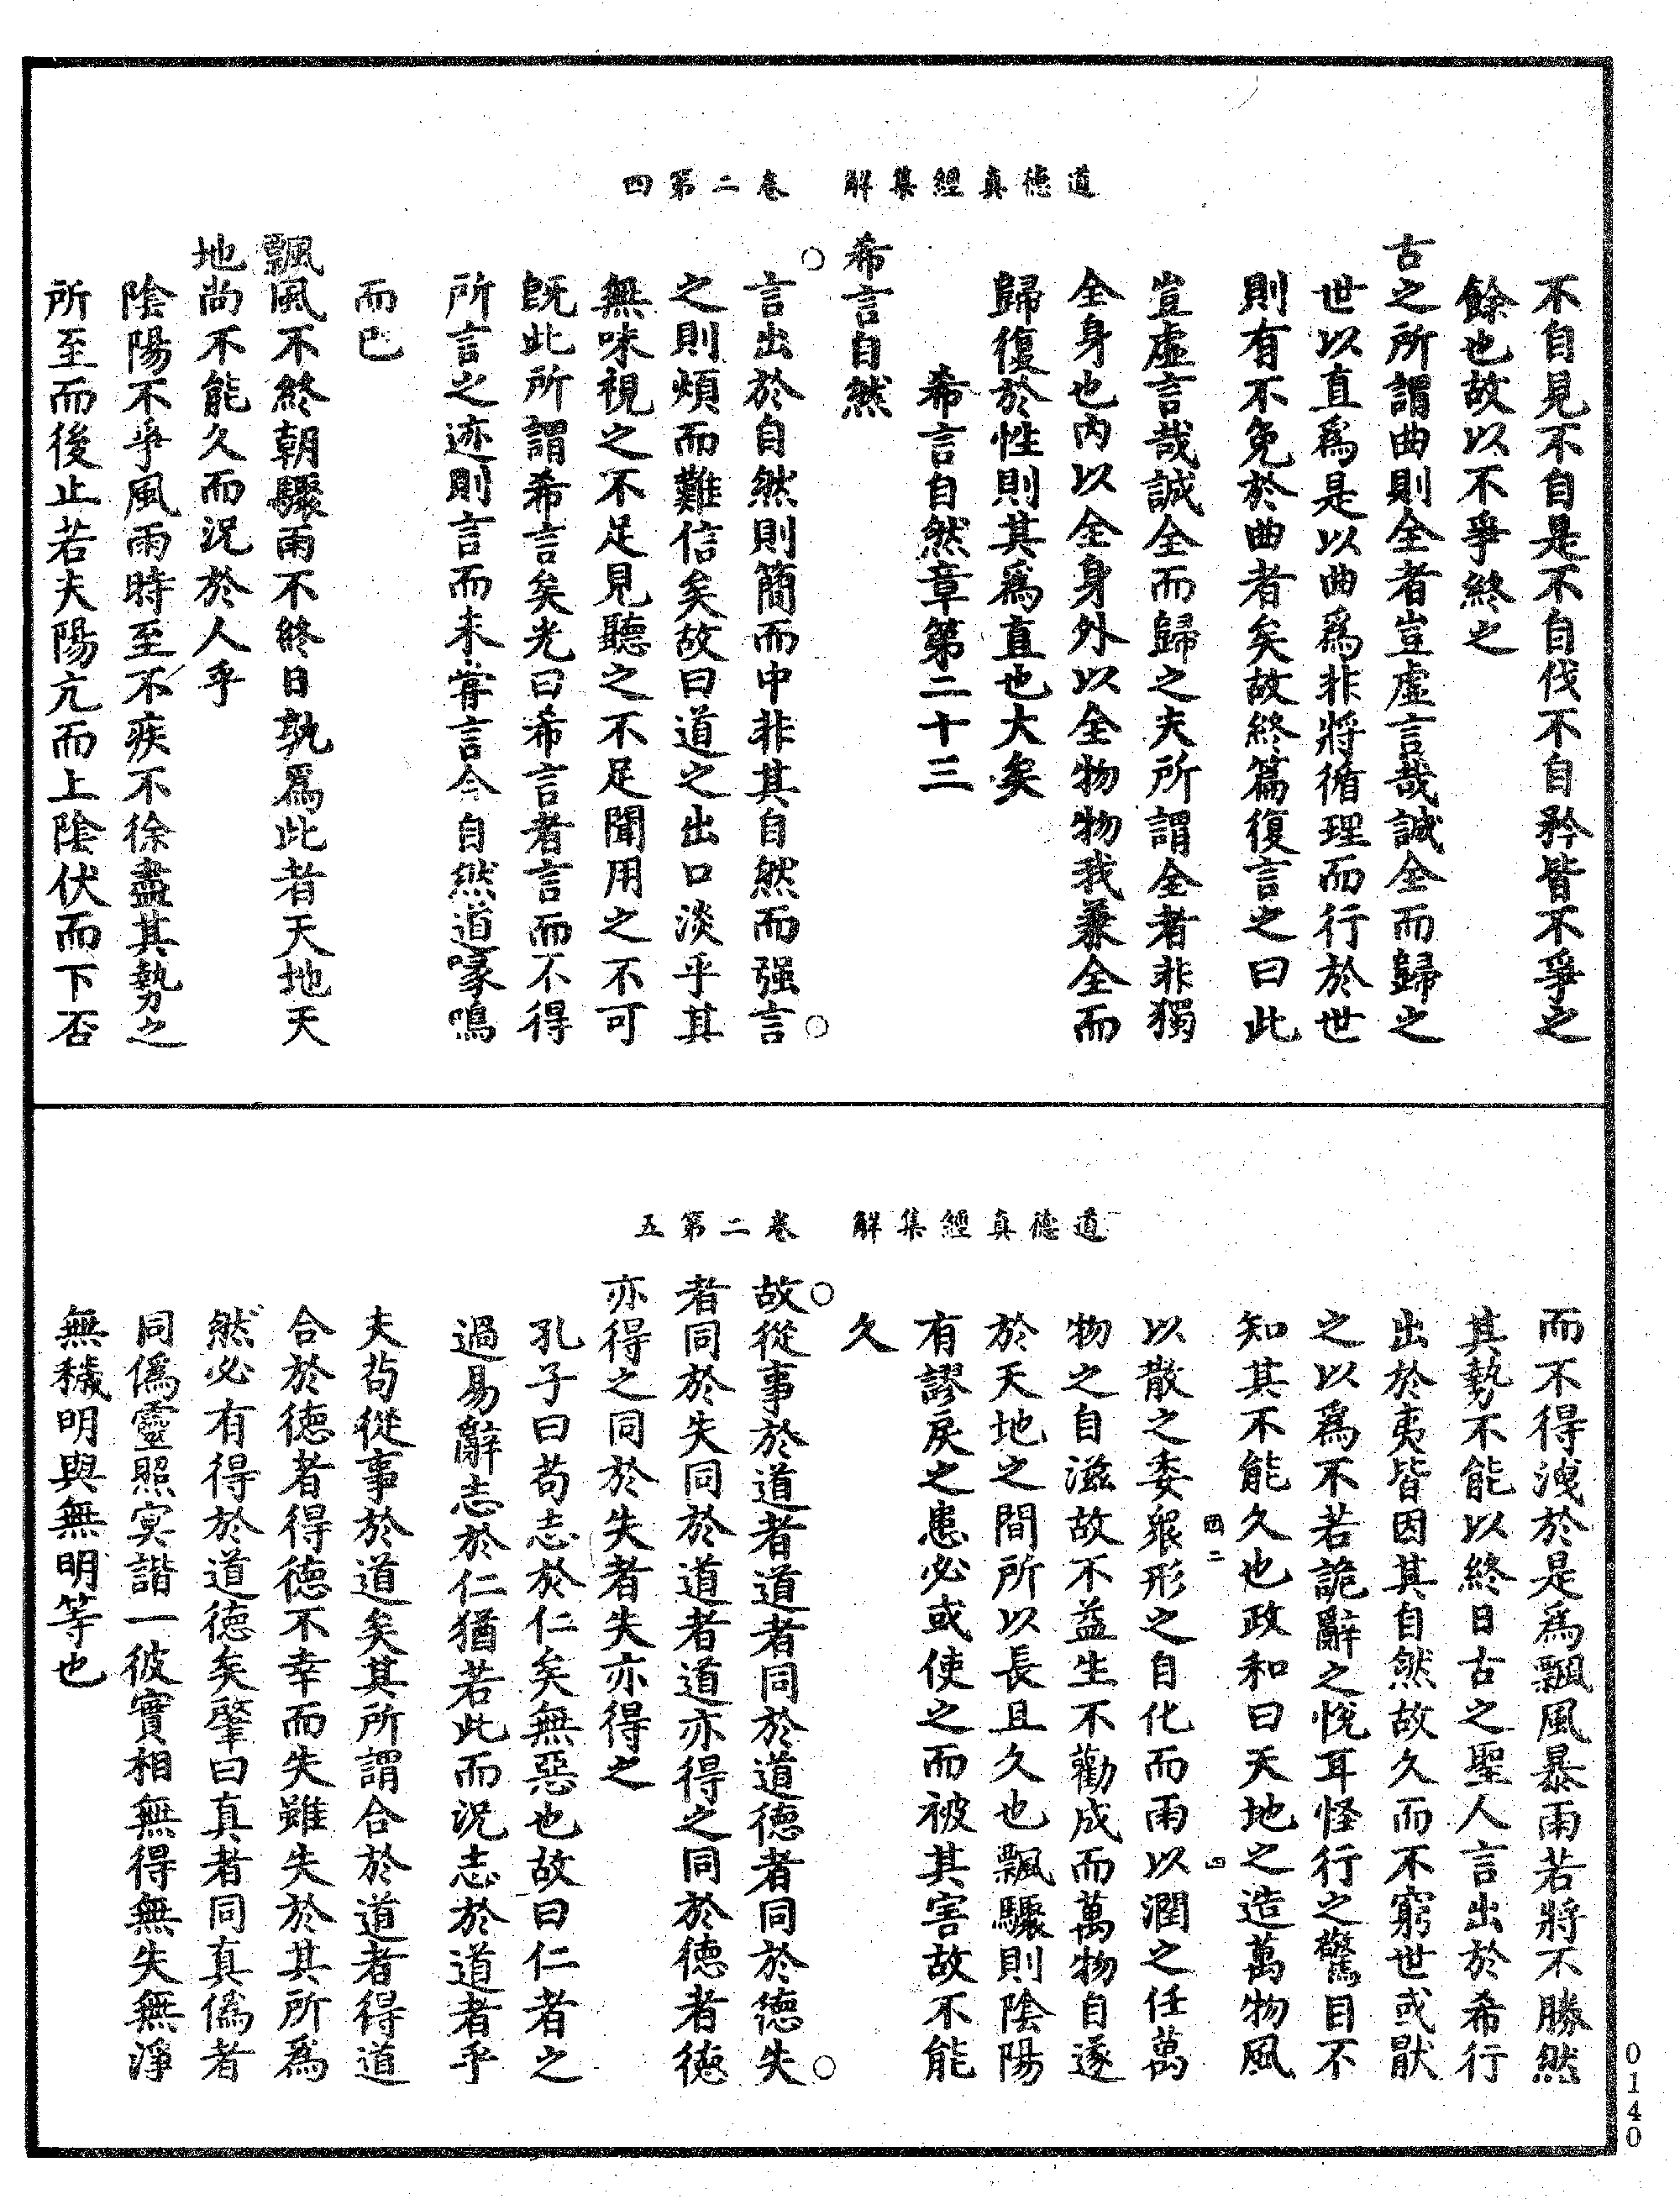 道德真經集解　卷二第四
不自見不自是不自伐不自矜皆不爭之
餘也故以不爭終之
古之所謂曲則全者豈虛言哉誠全而歸之
世以直爲是以曲爲非將循理而行於世
則有不免於曲者矣故終篇復言之曰此
豈虛言哉誠全而歸之夫所謂全者非獨
全身也內以全身外以全物物我兼全而
歸復於性則其爲直也大矣
希言自然章第二十三
希言自然
言出於自然則簡而中非其自然而强言
之則煩而難信矣故曰道之出口淡乎其
無味視之不足見聽之不足聞用之不可
旣此所謂希言矣光曰希言者言而不得
所言之迹則言而未嘗言合自然道喙鳴
而已
飄風不終朝驟雨不終日孰爲此者天地天
地尚不能久而況於人乎
陰陽不爭風雨時至不疾不徐盡其勢之
所至而後止若夫陽亢而上陰伏而下否
道德真經集解　卷二第五
而不得洩於是爲飄風暴雨若將不勝然
其勢不能以終日古之聖人言出於希行
出於夷皆因其自然故久而不窮世或厭
之以爲不若詭辭之悅耳怪行之驚目不
知其不能久也政和曰天地之造萬物風
以散之委衆形之自化而雨以潤之任萬
物之自滋故不益生不勸成而萬物自遂
於天地之間所以長且久也飄驟則陰陽
有謬戾之患必或使之而被其害故不能
久
故從事於道者道者同於道德者同於德失
者同於失同於道者道亦得之同於德者德
亦得之同於失者失亦得之
孔子曰苟志於仁矣無惡也故曰仁者之
過易辭志於仁猶若此而況志於道者乎
夫苟從事於道矣其所謂合於道者得道
合於德者得德不幸而失雖失於其所爲
然必有得於道德矣肇曰真者同真僞者
同僞靈照冥諧一彼實相無得無失無淨
無穢明與無明等也
0140